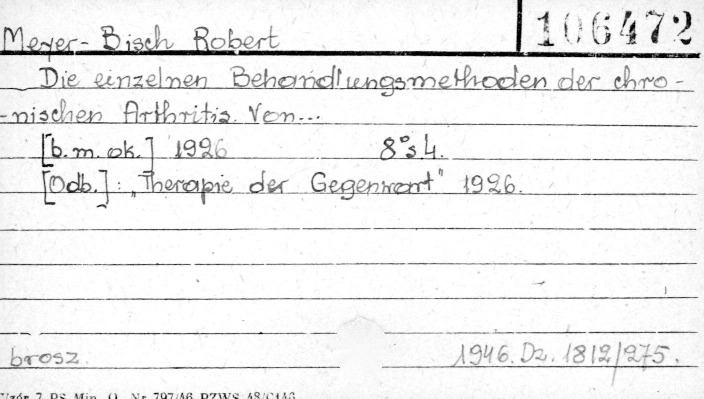 Meyer-Bisch Robert
106472
Die einzelnen Behandlungsmethoden der chro-
-nischen Arthritis. Von...
[b.m.ok.] 1926 8°s4.
[Odb.]: „Therapie der Gegenwart" 1926.
brosz. 1946.Dz.1812/275.
Wzór 7 PS. Min. O. Nr 797/46 PZWS 48/C146